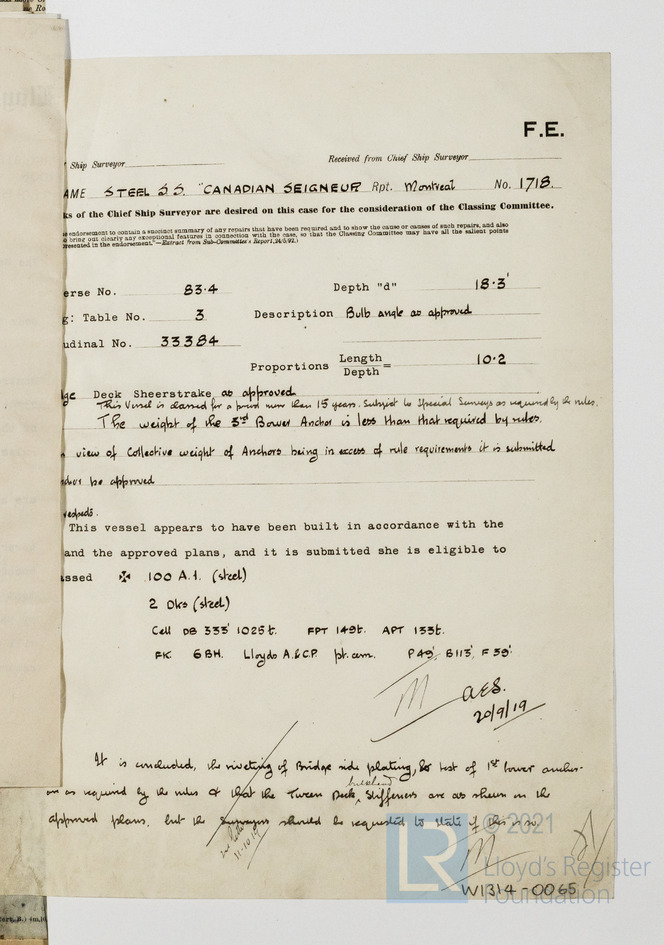 F.E.
Ship Surveyor
Received from Chief Ship Surveyor
AME STEEL S.S. "CANADIAN SEIGNEUR Rpt. Montreal No. 1718.
ks of the Chief Ship Surveyor are desired on this case for the consideration of the Classing Committee.
e endorsement to contain a succinct summary of any repairs that have been required and to show the cause or causes of such repairs, and also
o bring out clearly any exceptional features in connection with the case, so that the Classing Committee may have all the salient points
presented in the endorsement."—Extract from Sub-Committee's Report,
erse No. 83.4 Depth "d" 18.3'
g: Table No. 3 Description Bulb angle as approved
udinal No. 33384
Proportions Length/Depth = 10.2
ge Deck Sheerstrake as approved
This Vessel is classed for a period more than 15 years. Subject to Special Surveys as required by the rules.
The weight of the 3rd Bower Anchor is less than that required by rules.
view of Collective weight of Anchors being in excess of rule requirements it is submitted
be approved
This vessel appears to have been built in accordance with the
and the approved plans, and it is submitted she is eligible to
assed ✠ 100 A.1. (steel)
2 Dks (steel)
Cell DB 333' 1025t. FPT 149t. APT 133t.
FK 6BH. Lloyds A.&C.P. pt. am. P49', B113', F39'.
M A.E.S.
20/9/19
It is concluded, the riveting of Bridge side plating, & test of 1st bower anchor
as required by the rules & that the Tween Deck bulkhead stiffeners are as shewn on the
approved plans, but the Surveyors should be requested to state if this is so.
11.10.19
M
© 2021
LR
Lloyd's Register
Foundation
W1314-0065